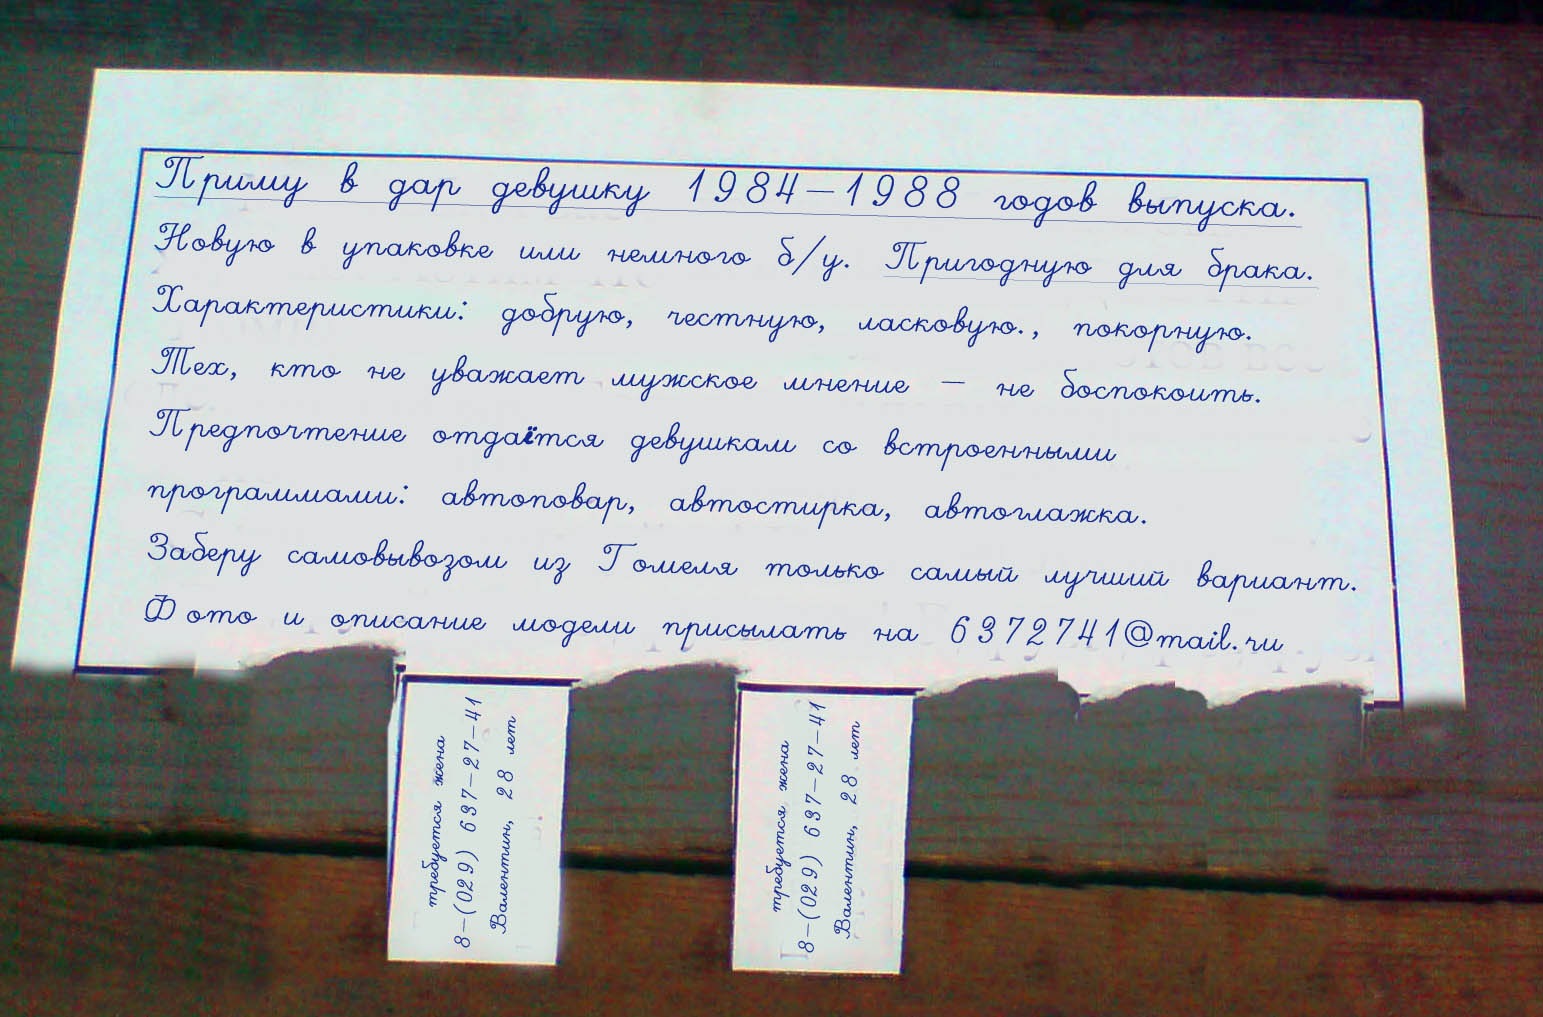 Приму в дар девушку 1984-1988 годов выпуска.
Новую в упаковке или немного б/у. Пригодную для брака.
Характеристики: добрую, честную, ласковую., покорную.
Тех, кто не уважает мужское мнение – не боспокоить.
Предпочтение отдаётся девушкам со встроенными
программами: автоповар, автостирка, автоглажка.
Заберу самовывозом из Гомеля только самый лучший вариант.
Фото и описание модели присылать на 6372741@mail.ru
требуется жена
8-(029) 637-27-41
Валентин, 28 лет
требуется жена
8-(029) 637-27-41
Валентин, 28 лет